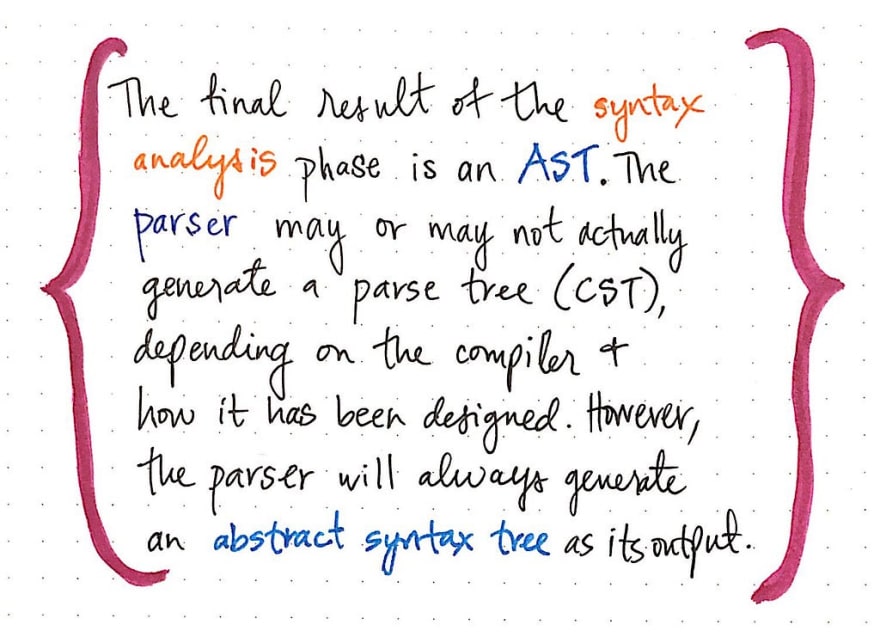 The final result of the syntax
analysis phase is an AST. The
parser may or may not actually
generate a parse tree (CST),
depending on the compiler +
how it has been designed. However,
the parser will always generate
an abstract syntax tree as its output.